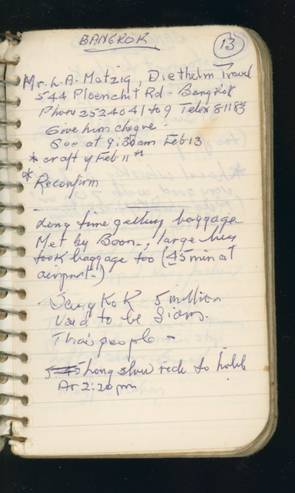 BANGKOK
13
Mr. L. A. Matzig, Diethelm Travel
544 Ploenchit Rd - Bangkok
Phone 2524041 to 9 Telex 81183
Give him cheque.
See at 9:30am Feb 13
* craft y Feb 11th
* Reconfirm
Long time getting baggage
Met by Boon-, large bus
took baggage too (45 min at
airport.)
Bangkok 5 million
Used to be Siam.
Thai people -
Long slow ride to hotel
Ar 2:20 pm